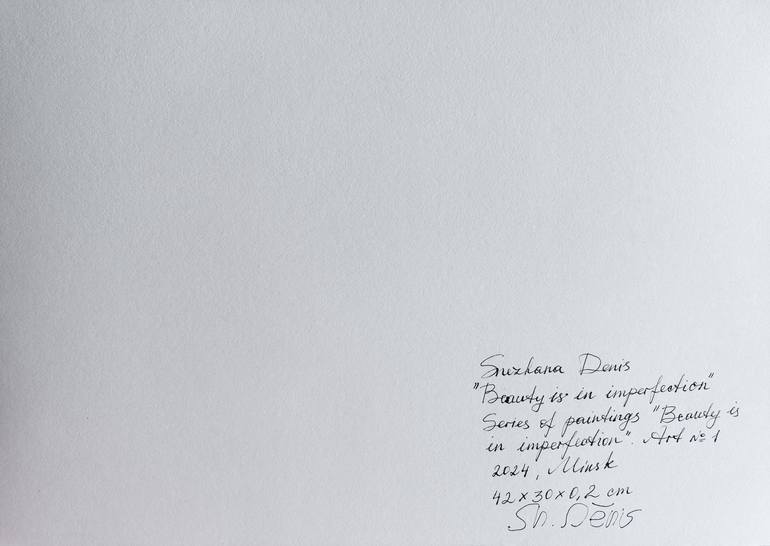 Snezhana Denis
"Beauty is in imperfection"
Series of paintings "Beauty is
in imperfection". Art № 1
2024, Minsk
42x30x0,2 cm
Sn. Denis